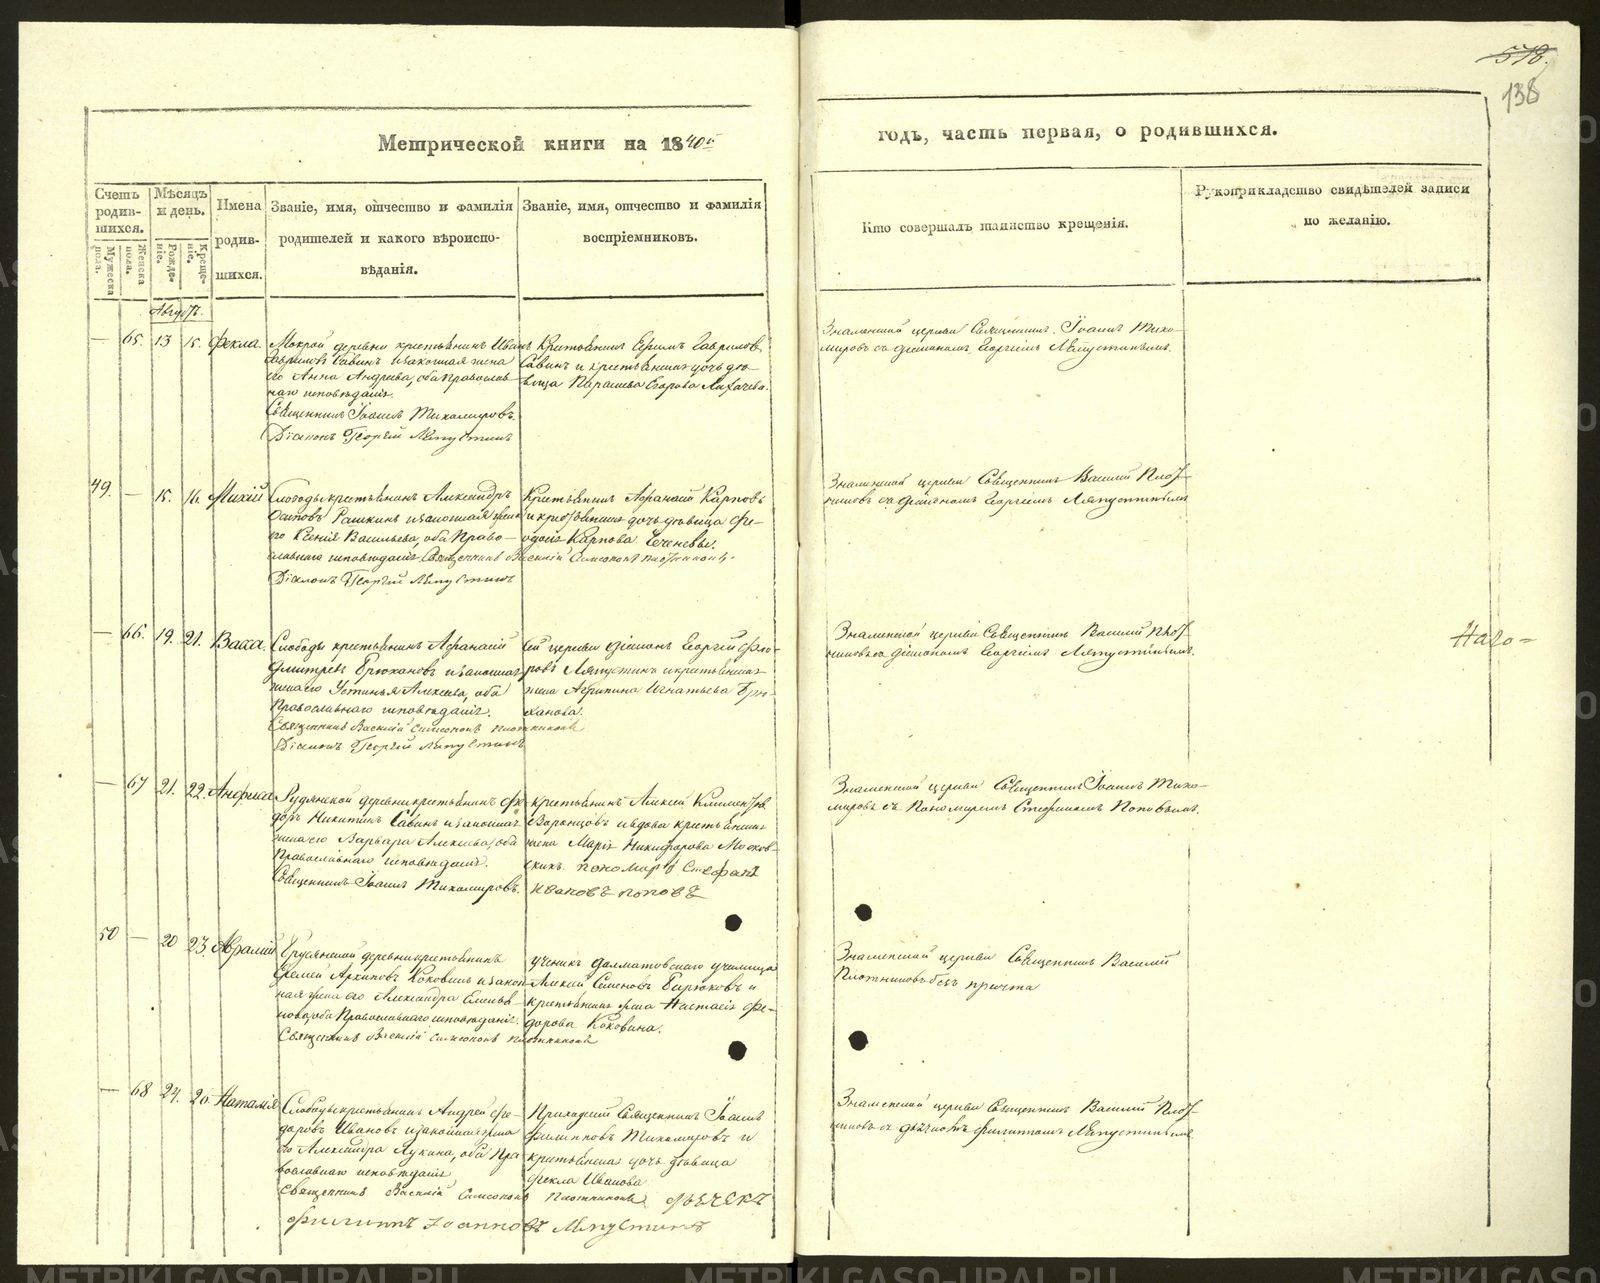 518.
138
Метрической книги на 1840й
годъ, часть первая, о родившихся.
Счетъ родив-шихся.
Мужеска пола.
Женска пола.
Мѣсяцъ и день.
Рожде-ніе.
Креще-ніе.
Имена родив-шихся.
Званіе, имя, отчество и фамилія родителей и какого вѣроиспо-вѣданія.
Званіе, имя, отчество и фамилія воспріемниковъ.
Кто совершалъ таинство крещенія.
Рукоприкладство свидѣтелей записи по желанію.
Августъ.
— 65. 13 15. Фекла.
Мокрой деревни крестьянинъ Иванъ
Гавриловъ Савинъ и законная жена
его Анна Андреева, оба православ-
наго исповѣданія.
Священникъ Іоаннъ Тихомировъ.
Діаконъ Георгій Ляпустинъ
Крестьянинъ Ефимъ Гавриловъ
Савинъ и крестьянская дочь дѣ-
вица Парасева Егорова Лихачева.
Знаменской церкви Священникъ Іоаннъ Тихо-
мировъ съ діакономъ Георгіемъ Ляпустинымъ.
49. — 15. 16.
Слободы крестьянинъ Александръ
Осиповъ Рашкинъ и законная жена
его Ксенія Васильева, оба Право-
славнаго исповѣданія Священникъ Василій Симеоновъ Плотниковъ
Діаконъ Георгій Ляпустинъ
Крестьянинъ Афанасій Карповъ
и крестьянская дочь дѣвица Фе-
одосія Карпова
Знаменской церкви Священникъ Василій Плот-
никовъ съ діакономъ Георгіемъ Ляпустинымъ
— 66. 19. 21. Васса.
Слободы крестьянинъ Афанасій
Дмитріевъ Брюхановъ и законная
жена его Устинья Алексеева, оба
Православнаго исповѣданія.
Священникъ Василій Симеоновъ Плотниковъ
Діаконъ Георгій Ляпустинъ
Сей церкви діаконъ Георгій Фло-
ровъ Ляпустинъ и крестьянская
жена Агрипина Игнатьева Брю-
ханова.
Знаменской церкви Священникъ Василій Плот-
никовъ съ діакономъ Георгіемъ Ляпустинымъ.
Наго=
— 67 21. 22. Анфиса
Рудянской деревни крестьянинъ Фе-
доръ Никитинъ Савинъ и законная
жена его Варвара Алексеева, оба
Православнаго исповѣданія.
Священникъ Іоаннъ Тихомировъ.
крестьянинъ Алексей Климентов
Воронцовъ и вдова крестьянская
жена Марія Никифорова Москов-
скихъ. пономарь Стефанъ
Ивановъ Поповъ
Знаменской церкви Священникъ Іоаннъ Тихо-
мировъ съ Пономаремъ Стефаномъ Поповымъ.
50 — 20 23. Авраамій
Грудянской деревни крестьянинъ
Еремей Архиповъ Коковинъ и закон-
ная жена его Александра Семено-
нова, оба Православнаго исповѣданія.
Священникъ Василій Симеоновъ Плотниковъ
ученикъ Далматовскаго училища
Алексей Семеновъ Бирюковъ и
крестьянская жена Настасія Фе-
дорова Коковина.
Знаменской церкви Священникъ Василій
Плотниковъ безъ причта
— 68 24. 26 Наталія
Слободы крестьянинъ Андрей Фе-
доровъ Ивановъ и законная жена
его Александра Лукина, оба Пра-
вославнаго исповѣданія
Священникъ Василій Симеоновъ Плотниковъ Дьячекъ
Филиппъ Іоанновъ Ляпустинъ
Приходскій Священникъ Іоаннъ
Филипповъ Тихомировъ и
крестьянская дочь дѣвица
Фекла Иванова
Знаменской церкви Священникъ Василій Плот-
никовъ съ дьячкомъ Филиппомъ Ляпустинымъ
METRIKI.GASO-URAL.RU
METRIKI.GASO-URAL.RU
METRIKI.GASO